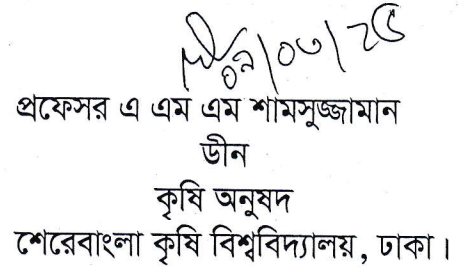 ০৯/০৩/২৫
প্রফেসর এ এম এম শামসুজ্জামান
ডীন
কৃষি অনুষদ
শেরেবাংলা কৃষি বিশ্ববিদ্যালয়, ঢাকা।